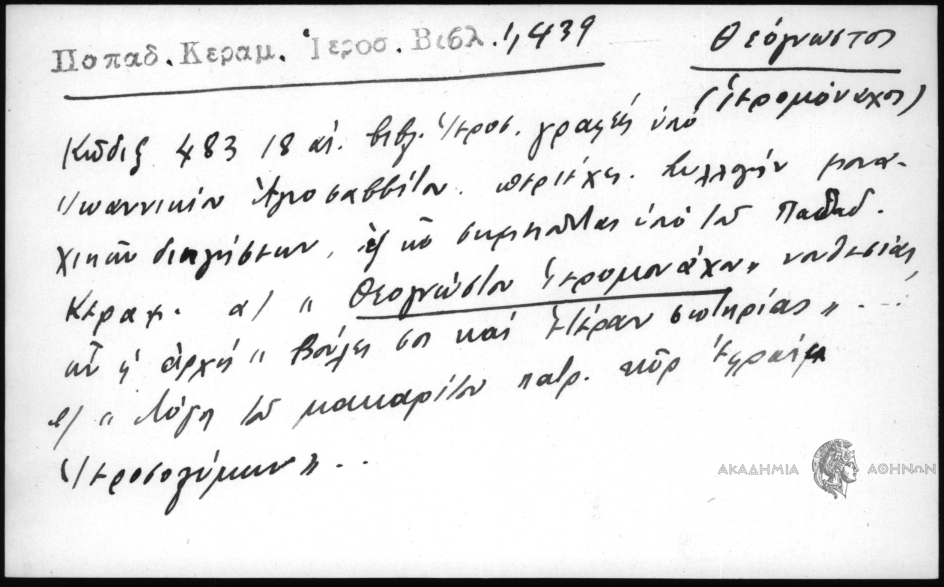 Παπαδ. Κεραμ. Ἱεροσ. Βιβλ. 1,439
Θεόγνωστος
(ἱερομόναχος)
Κῶδιξ 483 18 αἰ. βιβλ. Ἱεροσ. γραφεὶς ὑπὸ
Ἰωαννικίου Ἁγιοσαββίτου. περιέχει. Συλλογὴν μονα-
χικῶν διηγήσεων, ἐξ ὧν σημειοῦνται ὑπὸ τοῦ Παπαδ.
Κεραμ. α) " Θεογνώστου ἱερομονάχου" νουθεσίας,
ὧν ἡ ἀρχή " Βούλει σοι καὶ ἑτέραν σωτηρίας" ...
" Λόγοι τοῦ μακαρίτου πατρ. κῦρ Ἐφραὶμ
Ἱεροσολύμων" ..
ΑΚΑΔΗΜΙΑ ΑΘΗΝΩΝ